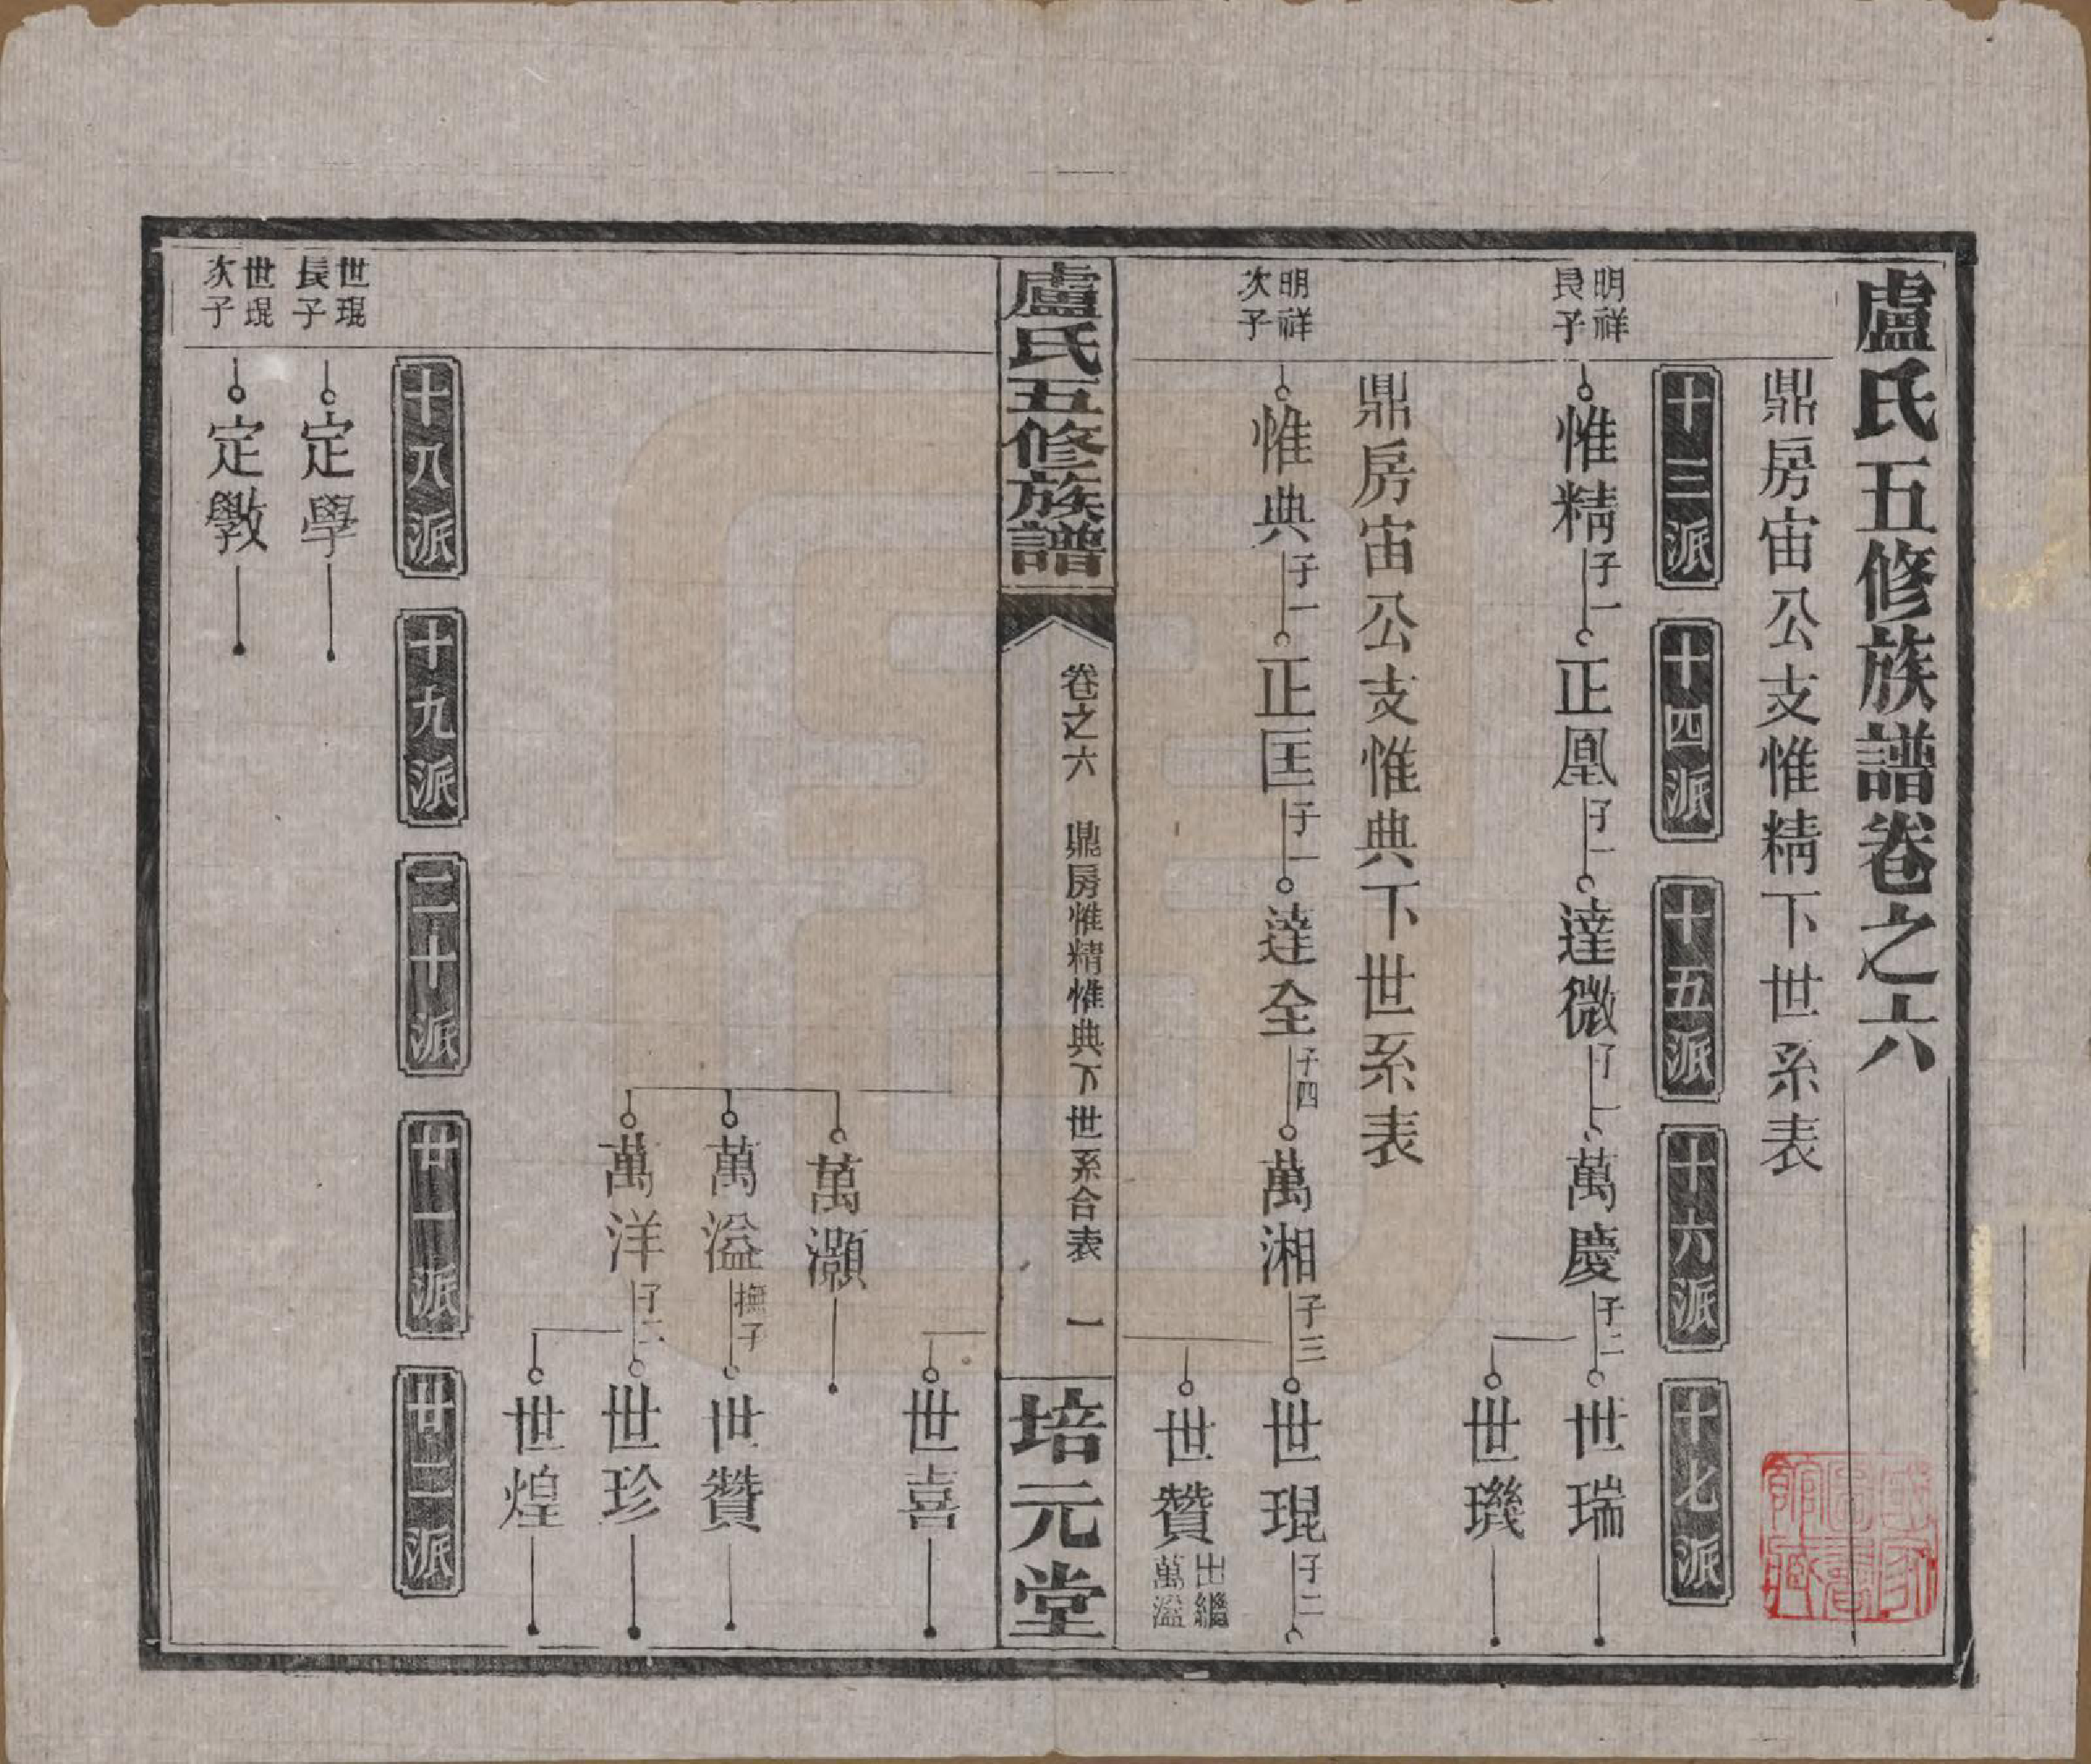 盧氏五修族譜卷之六
鼎房宙公支惟精下世系表
十三派
十四派
十五派
十六派
十七派
明祥
長子
惟精
子一
正凰
子一
達微
子一
萬慶
子二
世瑞
世璣
鼎房宙公支惟典下世系表
明祥
次子
惟典
子一
正匡
子一
達全
子四
萬湘
子三
世琨
子二
世贊
出繼
萬溢
盧氏五修族譜
卷之六
鼎房惟精惟典下世系合表
一
培元堂
世喜
萬灝
萬溢
撫子
世贊
萬洋
子二
世珍
世煌
十八派
十九派
二十派
廿一派
廿二派
世琨
長子
定學
世琨
次子
定斆